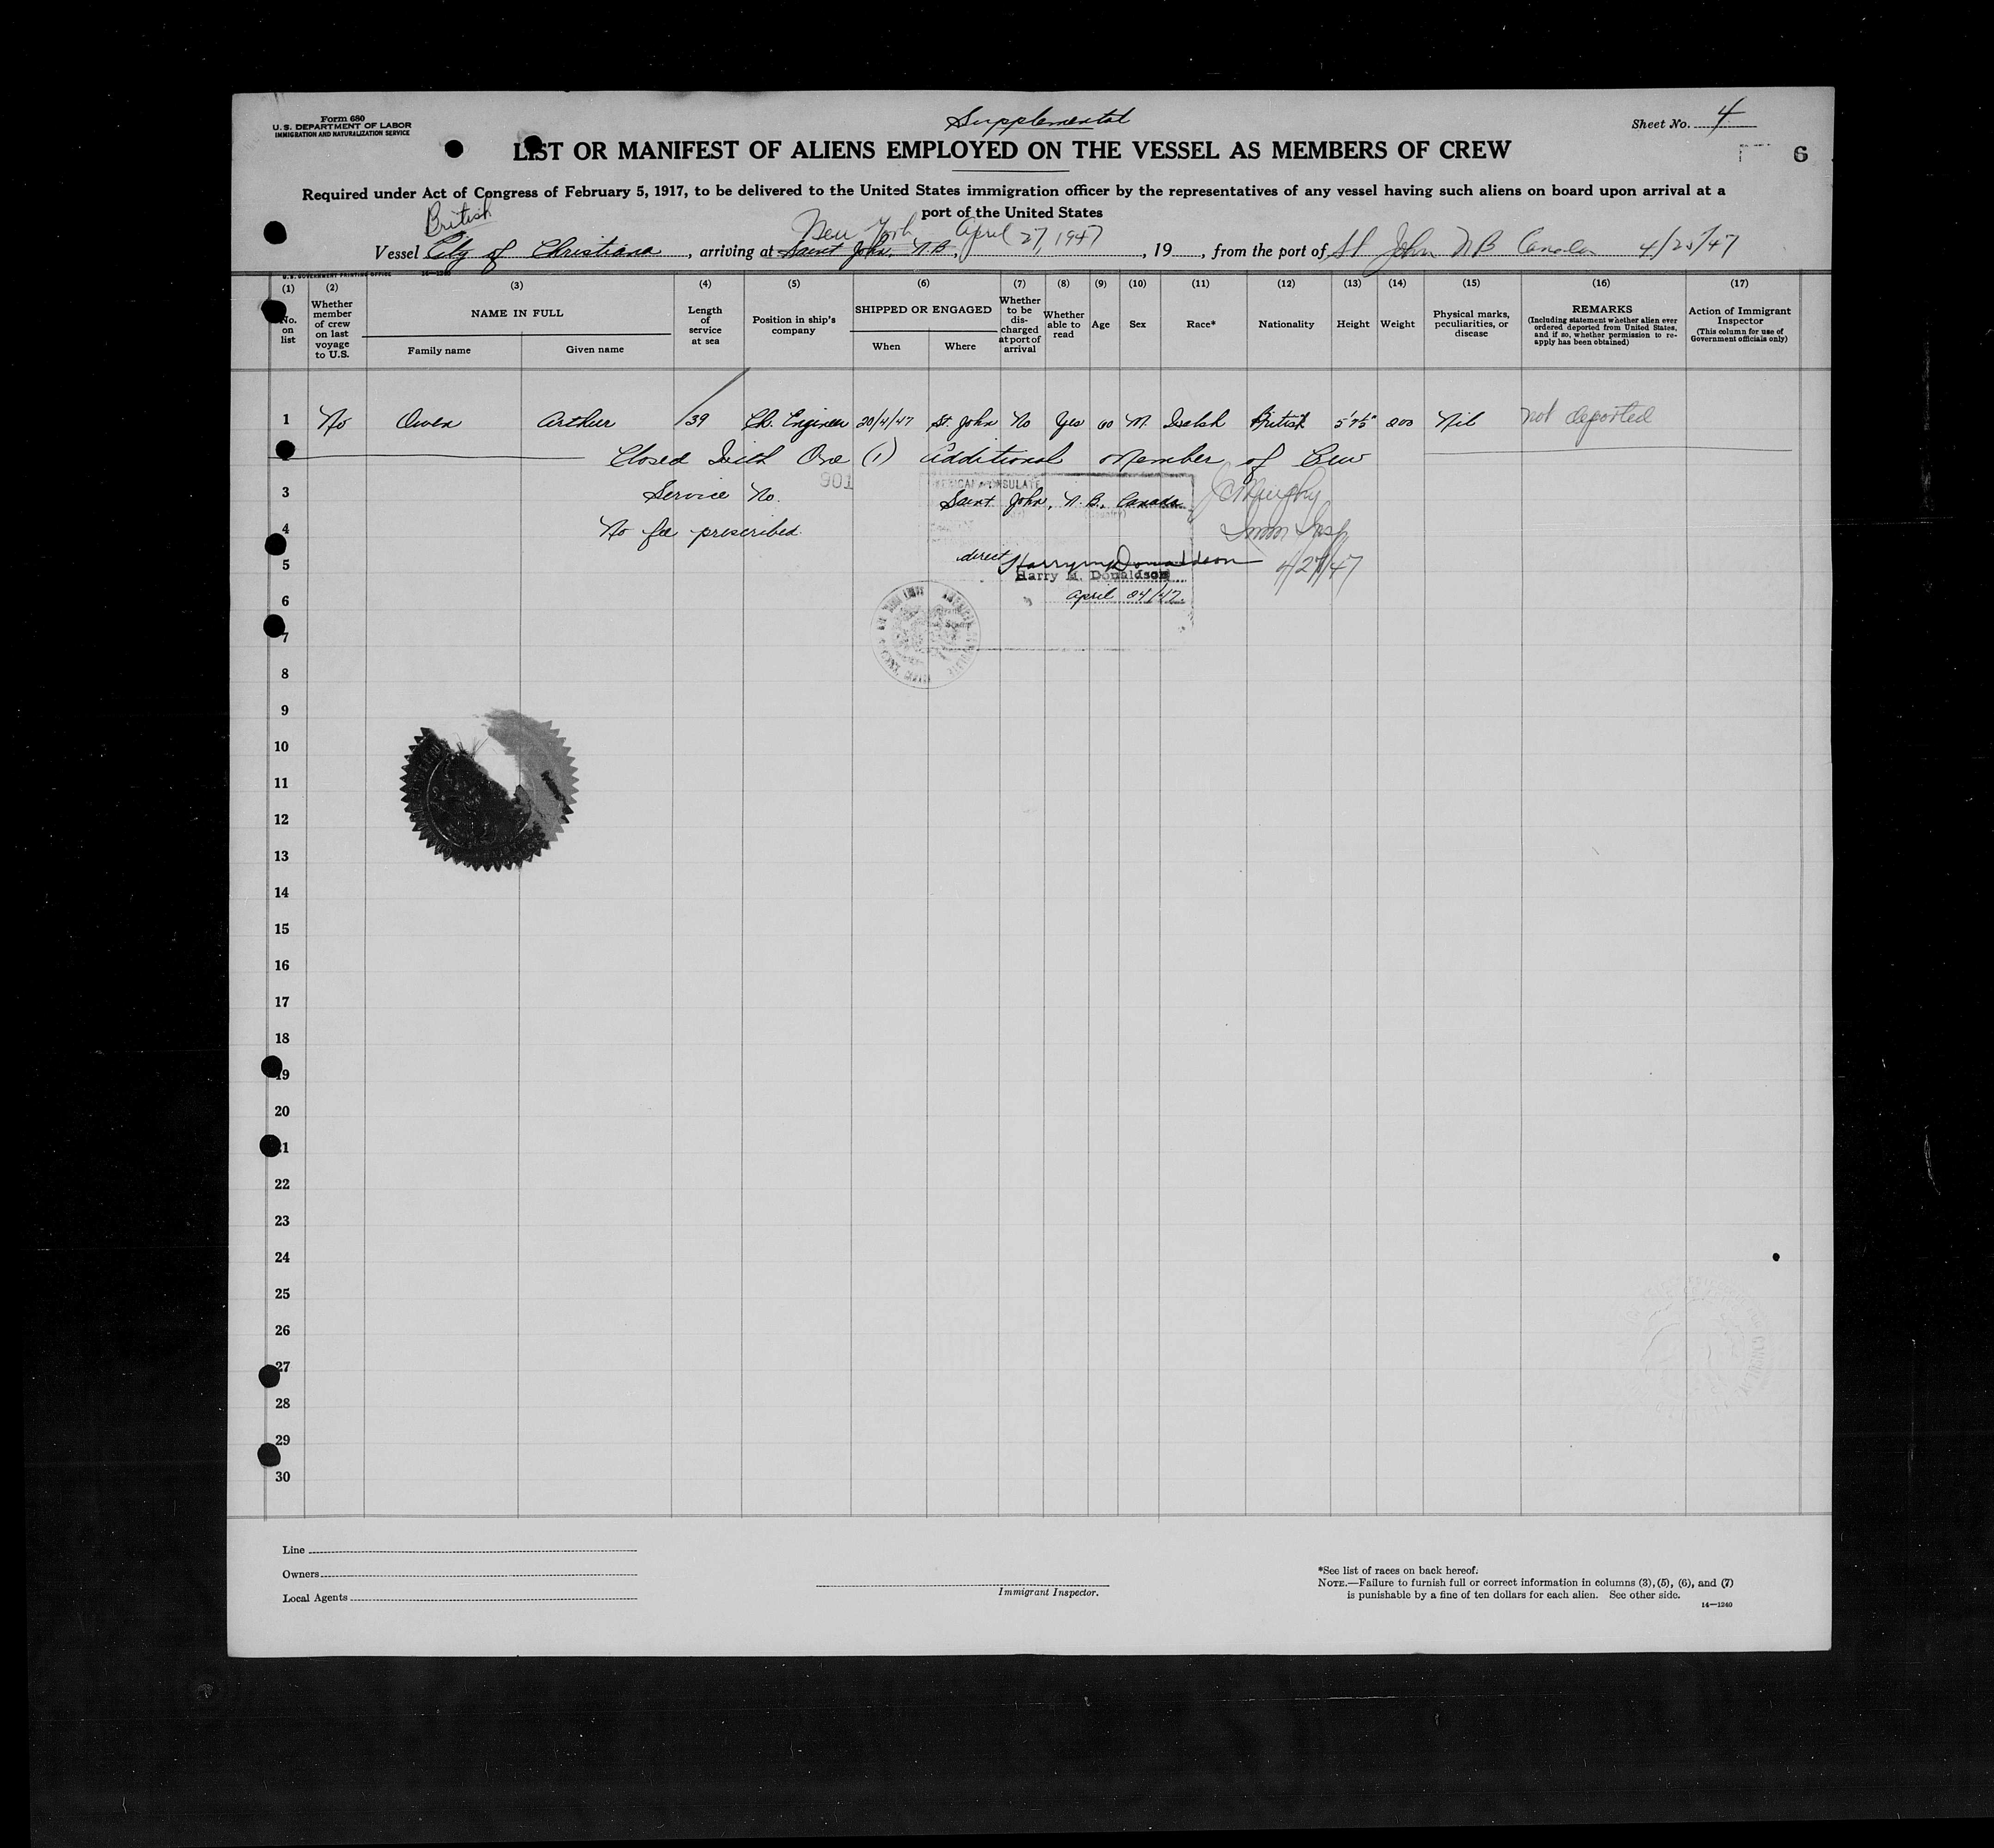 Form 680
U. S. DEPARTMENT OF LABOR
IMMIGRATION AND NATURALIZATION SERVICE
Supplemental
Sheet No. 4
LIST OR MANIFEST OF ALIENS EMPLOYED ON THE VESSEL AS MEMBERS OF CREW
6
Required under Act of Congress of February 5, 1917, to be delivered to the United States immigration officer by the representatives of any vessel having such aliens on board upon arrival at a
port of the United States
British
New York April 27, 1947
Vessel City of Christiana, arriving at Saint John, N.B., , 19 , from the port of St John NB Canada 4/25/47
U.S. GOVERNMENT PRINTING OFFICE
(1) (2) (3) (4) (5) (6) (7) (8) (9) (10) (11) (12) (13) (14) (15) (16) (17)
No. on list
Whether member of crew on last voyage to U.S.
NAME IN FULL
Family name
Given name
Length of service at sea
Position in ship's company
SHIPPED OR ENGAGED
When
Where
Whether to be discharged at port of arrival
Whether able to read
Age
Sex
Race*
Nationality
Height
Weight
Physical marks, peculiarities, or disease
REMARKS
(Including statement whether alien ever ordered deported from United States, and if so, whether permission to re-apply has been obtained)
Action of Immigrant Inspector
(This column for use of Government officials only)
1 No Owen Arthur 39 Ch. Engineer 20/4/47 St. John No Yes 60 M. Welsh British 5'7½" 200 Nil not deported
Closed With One (1) additional Member of Crew
901
AMERICAN CONSULATE
3 Service No. Saint John, N. B., Canada JC Murphy
4 No fee prescribed. Imm Insp
5 direct Harry M Donaldson 4/27/47
Harry M. Donaldson
6 April 24/47.
7
8
9
10
11
12
13
14
15
16
17
18
19
20
21
22
23
24
25
26
27
28
29
30
Line
Owners
Local Agents
Immigrant Inspector.
*See list of races on back hereof.
NOTE.—Failure to furnish full or correct information in columns (3), (5), (6), and (7)
is punishable by a fine of ten dollars for each alien. See other side.
14—1240